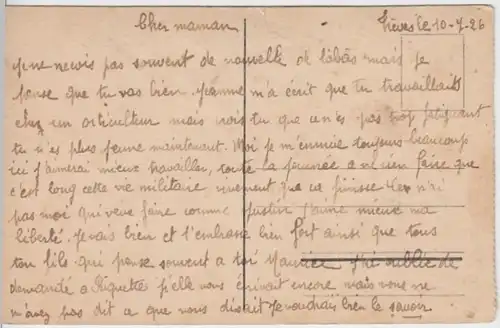 Trèves le 10-7-26
Cher maman
Je ne recois pas souvent de nouvelle de labas mais je
pense que tu vas bien. Jeanne m'a écrit que tu travaillait
chez un orticulteur mais vois tu que ce n'es pas trop fatiguant
tu n'es plus jeune maintenant. Moi je m'ennuie toujours beaucoup
ici j'aimerai mieux travailler toute la journée a ne rien faire que
c'est long cette vie militaire vivement que ca finisse
pas moi qui veux faire comme Justin j'aime mieux ma
liberté. Je vais bien et t'embrasse bien fort ainsi que tous
ton fils qui pense souvent a toi Maurice J'ai oublié de
demandé a Riquette si elle vous écrivait encore mais vous ne
m'avez pas dit a que nous disait je voudrais bien le savoir